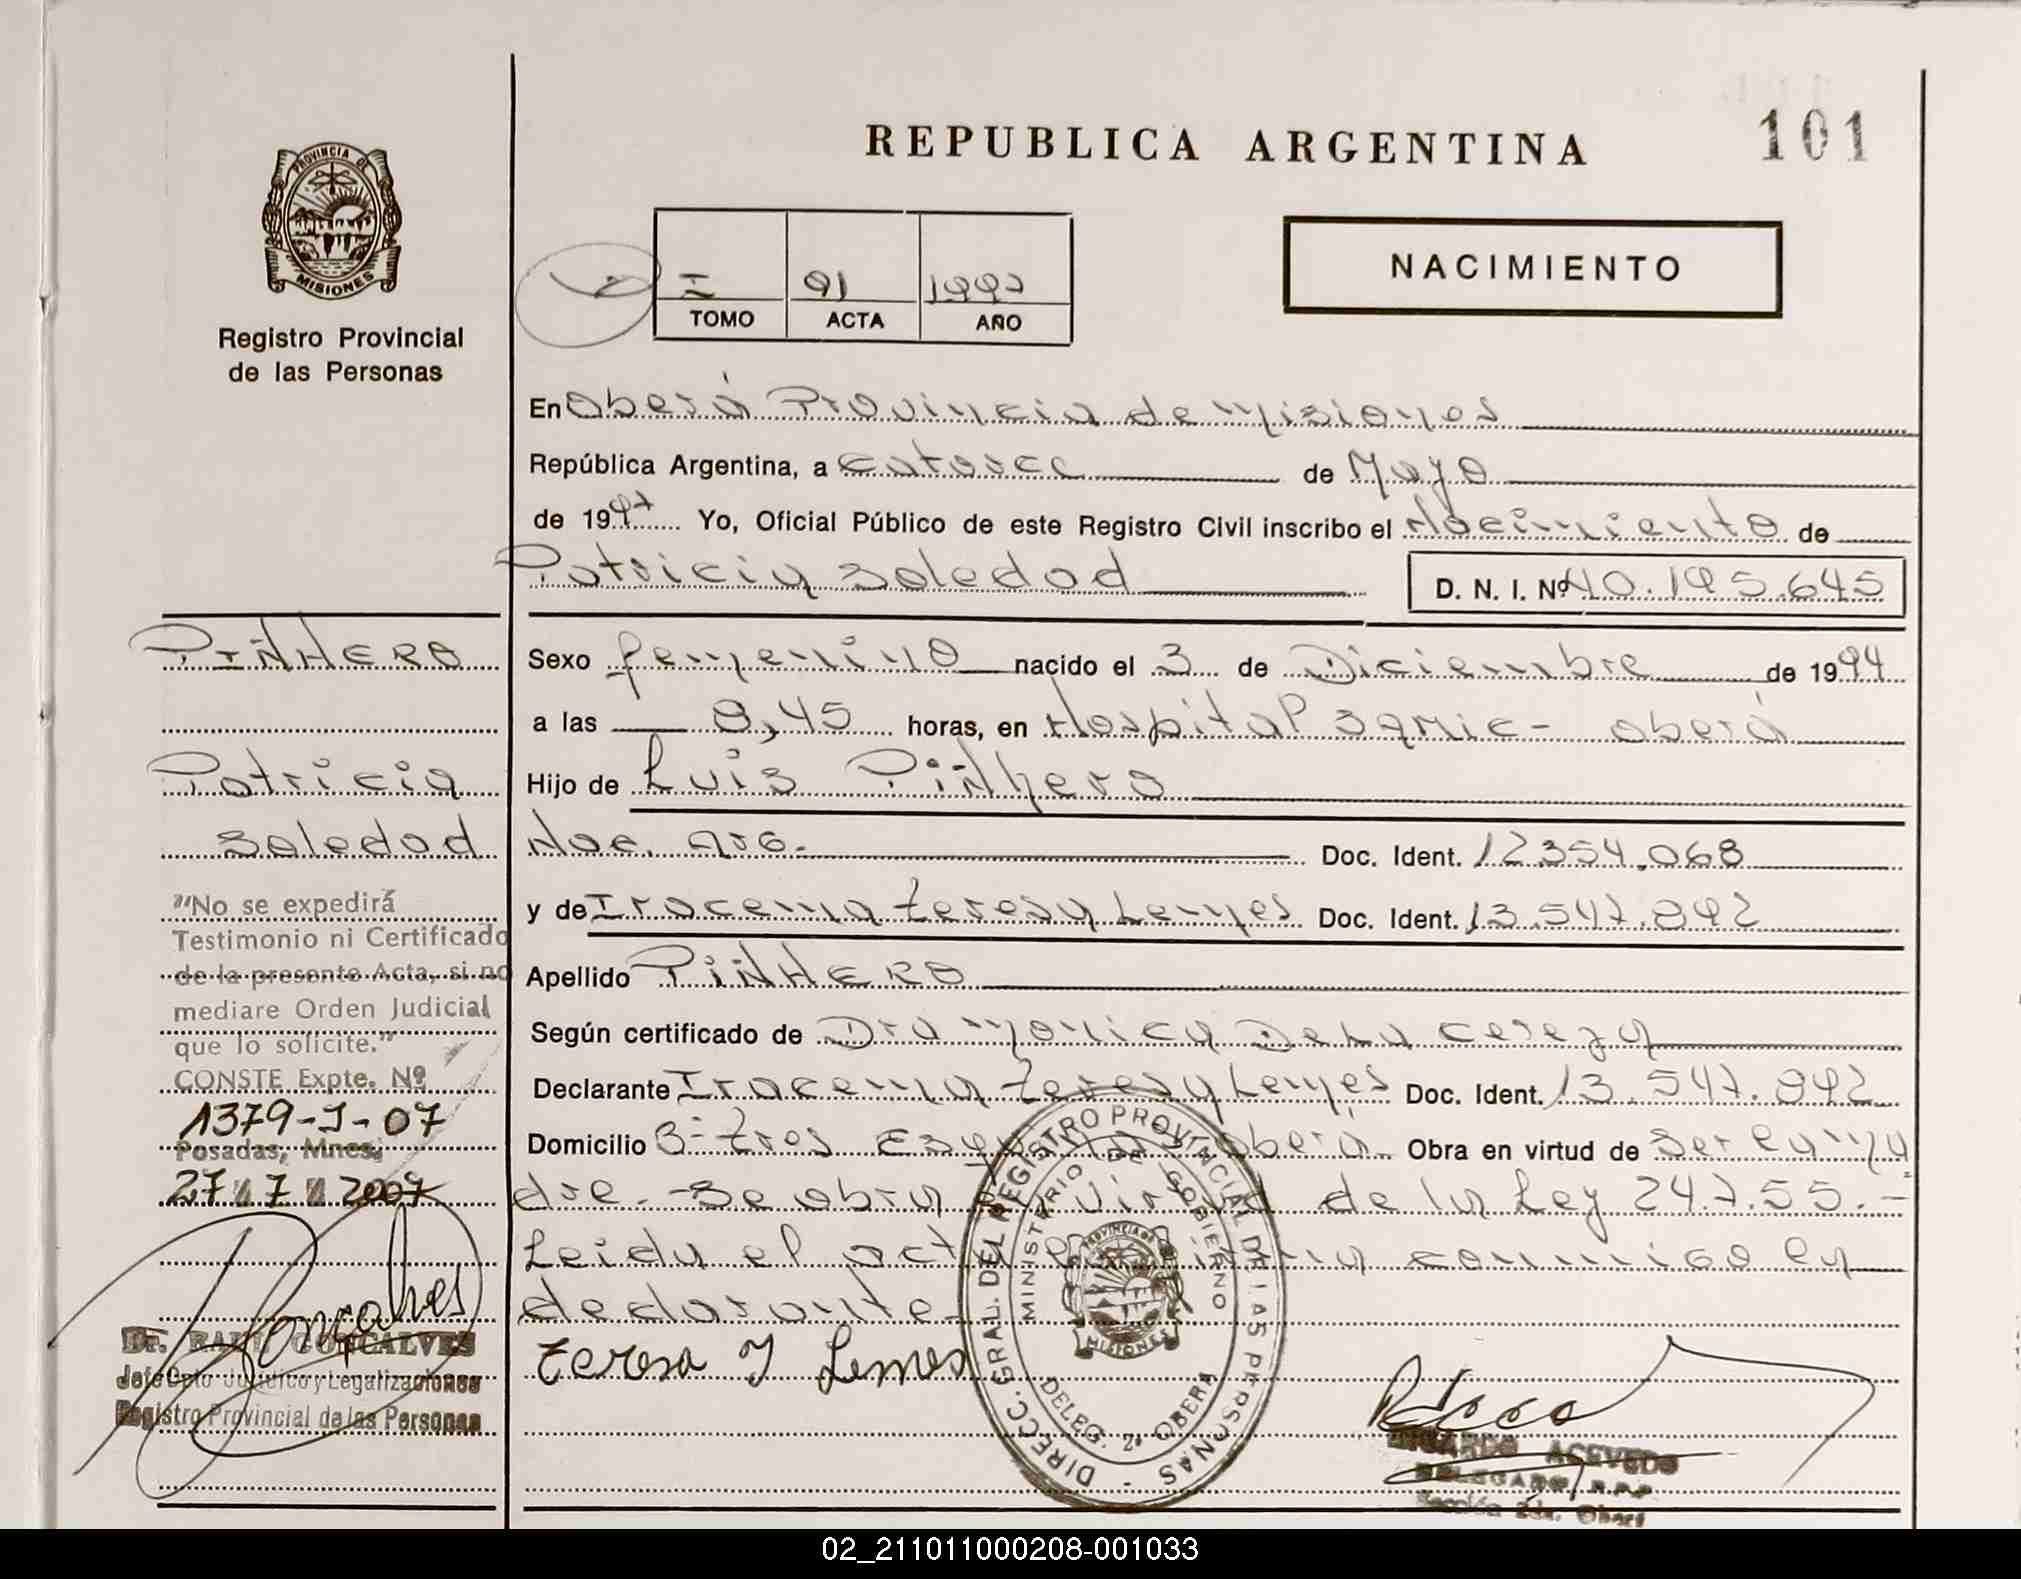 REPUBLICA ARGENTINA
101
PROVINCIA DE
MISIONES
Registro Provincial
de las Personas
I 91 1997
TOMO ACTA AÑO
NACIMIENTO
En Oberá Provincia de Misiones
República Argentina, a catorce de Mayo
de 1997 Yo, Oficial Público de este Registro Civil inscribo el Nacimiento de
Patricia Soledad D. N. I. Nº 40.195.645
PIÑHERO
Patricia
Soledad
Sexo femenino nacido el 3 de Diciembre de 1994
a las 8,45 horas, en Hospital Samic - Oberá
Hijo de Luis Piñhero
Nac. Arg. Doc. Ident. 12.354.068
y de Iracema Teresa Lemes Doc. Ident. 13.547.892
Apellido PIÑHERO
Según certificado de Dra Monica Dela Cereza
Declarante Iracema Teresa Lemes Doc. Ident. 13.547.892
Domicilio B- tres Oberá Obra en virtud de Ser la ma
dre.- Se obra en virtud de la Ley 24.7.55.-
Leida el acta conmigo la
declarante-
Teresa I Lemes
"No se expedirá
Testimonio ni Certificado
de la presente Acta, si no
mediare Orden Judicial
que lo solicite."
CONSTE Expte. Nº
1379-J-07
Posadas, Mnes;
27 7 2007
Gonçalves
Dr. RAUL GONÇALVES
Jefe Dpto Jurídico y Legalizaciones
Registro Provincial de las Personas
DIRECC. GRAL. DEL REGISTRO PROVINCIAL DE LAS PERSONAS -
MINISTERIO DE GOBIERNO
PROVINCIA DE
MISIONES
DELEG. 2ª OBERA
ACEVEDO
DELEGADO R.P.P.
Sección 2da. Oberá
02_211011000208-001033